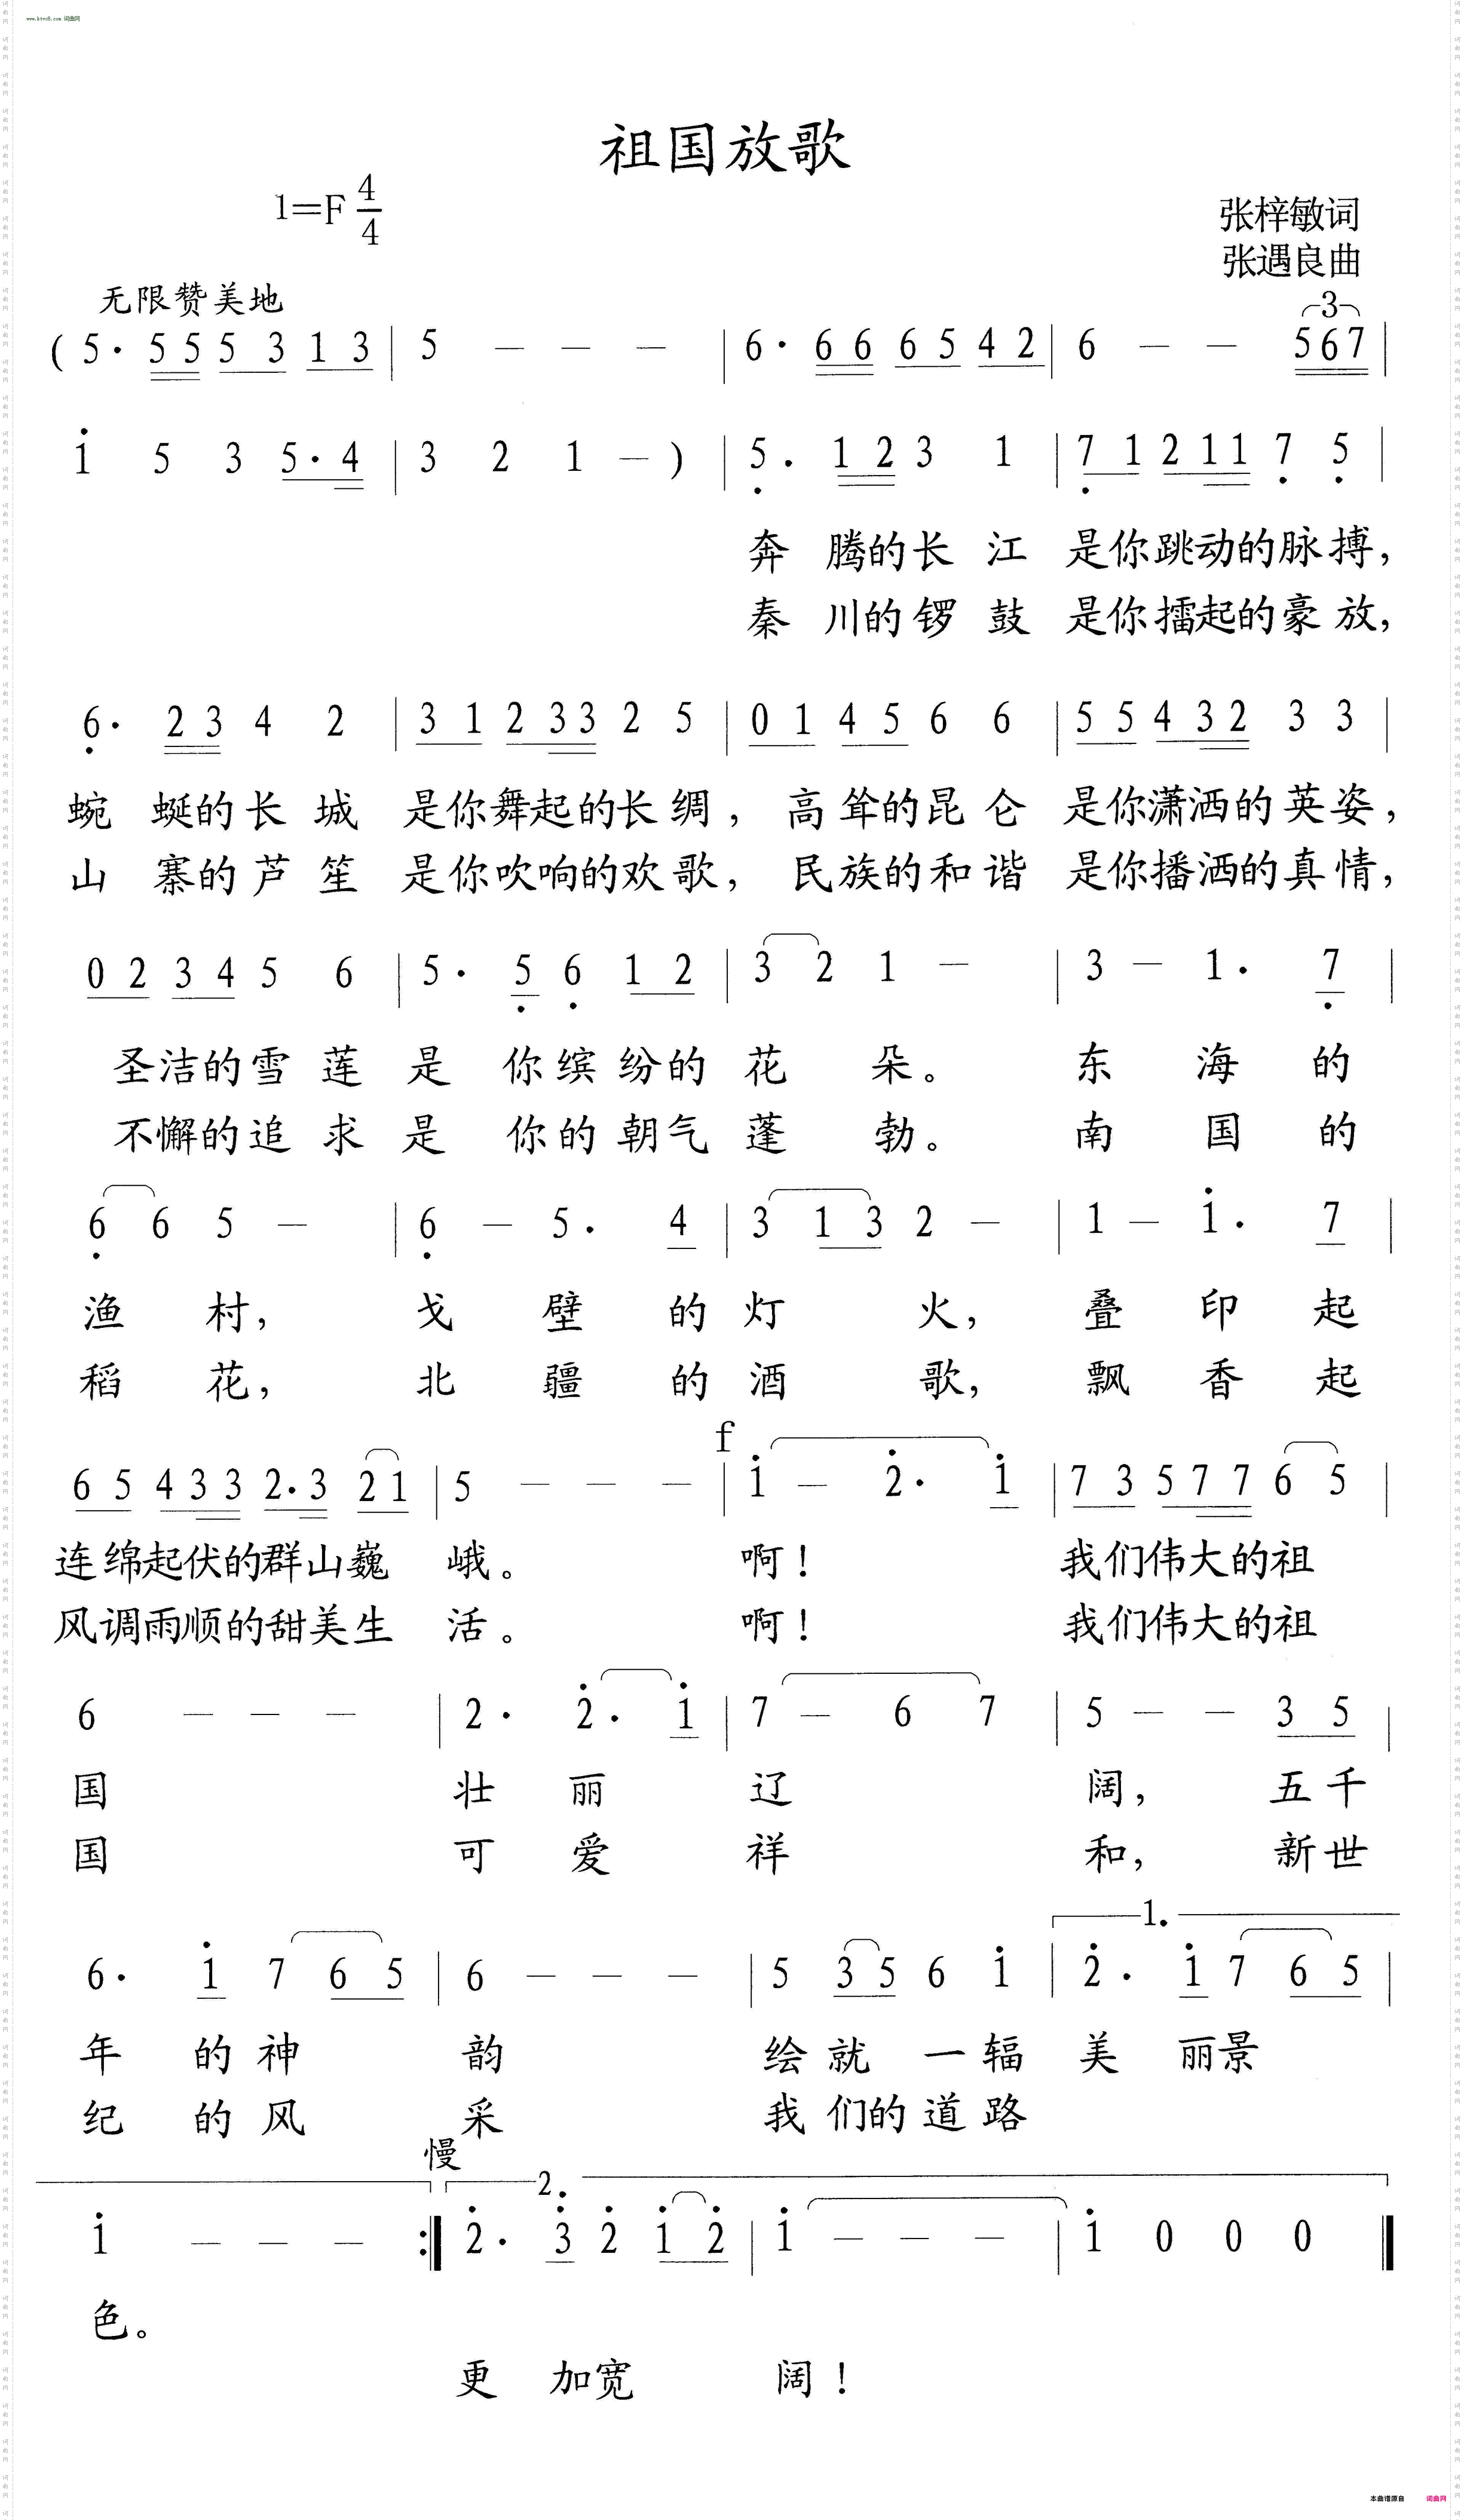 www.ktvc8.com 词曲网
祖国放歌
1=F 4/4
张梓敏词
张遇良曲
无限赞美地
3
( 5· 5 5 5 3 1 3 | 5 — — — | 6· 6 6 6 5 4 2 | 6 — — 5 6 7 |
i 5 3 5· 4 | 3 2 1 — ) | 5· 1 2 3 1 | 7 1 2 1 1 7 5 |
奔 腾的长 江 是你跳动的脉搏,
秦 川的锣 鼓 是你擂起的豪放,
6· 2 3 4 2 | 3 1 2 3 3 2 5 | 0 1 4 5 6 6 | 5 5 4 3 2 3 3 |
蜿 蜒的长 城 是你舞起的长绸, 高耸的昆仑 是你潇洒的英姿,
山 寨的芦笙 是你吹响的欢歌, 民族的和谐 是你播洒的真情,
0 2 3 4 5 6 | 5· 5 6 1 2 | 3 2 1 — | 3 — 1· 7 |
圣洁的雪莲 是 你缤纷的 花 朵。 东 海 的
不懈的追求 是 你的朝气 蓬 勃。 南 国 的
6 6 5 — | 6 — 5· 4 | 3 1 3 2 — | 1 — i· 7 |
渔 村, 戈 壁 的灯 火, 叠 印 起
稻 花, 北 疆 的酒 歌, 飘 香 起
f
6 5 4 3 3 2·3 2 1 | 5 — — — | i — 2· i | 7 3 5 7 7 6 5 |
连绵起伏的群山巍 峨。 啊! 我们伟大的祖
风调雨顺的甜美生 活。 啊! 我们伟大的祖
6 — — — | 2· 2· i | 7 — 6 7 | 5 — — 3 5 |
国 壮 丽 辽 阔, 五千
国 可 爱 祥 和, 新世
1.
6· i 7 6 5 | 6 — — — | 5 3 5 6 i | 2· i 7 6 5 |
年 的神 韵 绘就 一辐 美 丽景
纪 的风 采 我们的道路
慢
2.
i — — — :‖ 2· 3 2 i 2 | i — — — | i 0 0 0 ‖
色。
更 加宽 阔!
本曲谱源自 词曲网